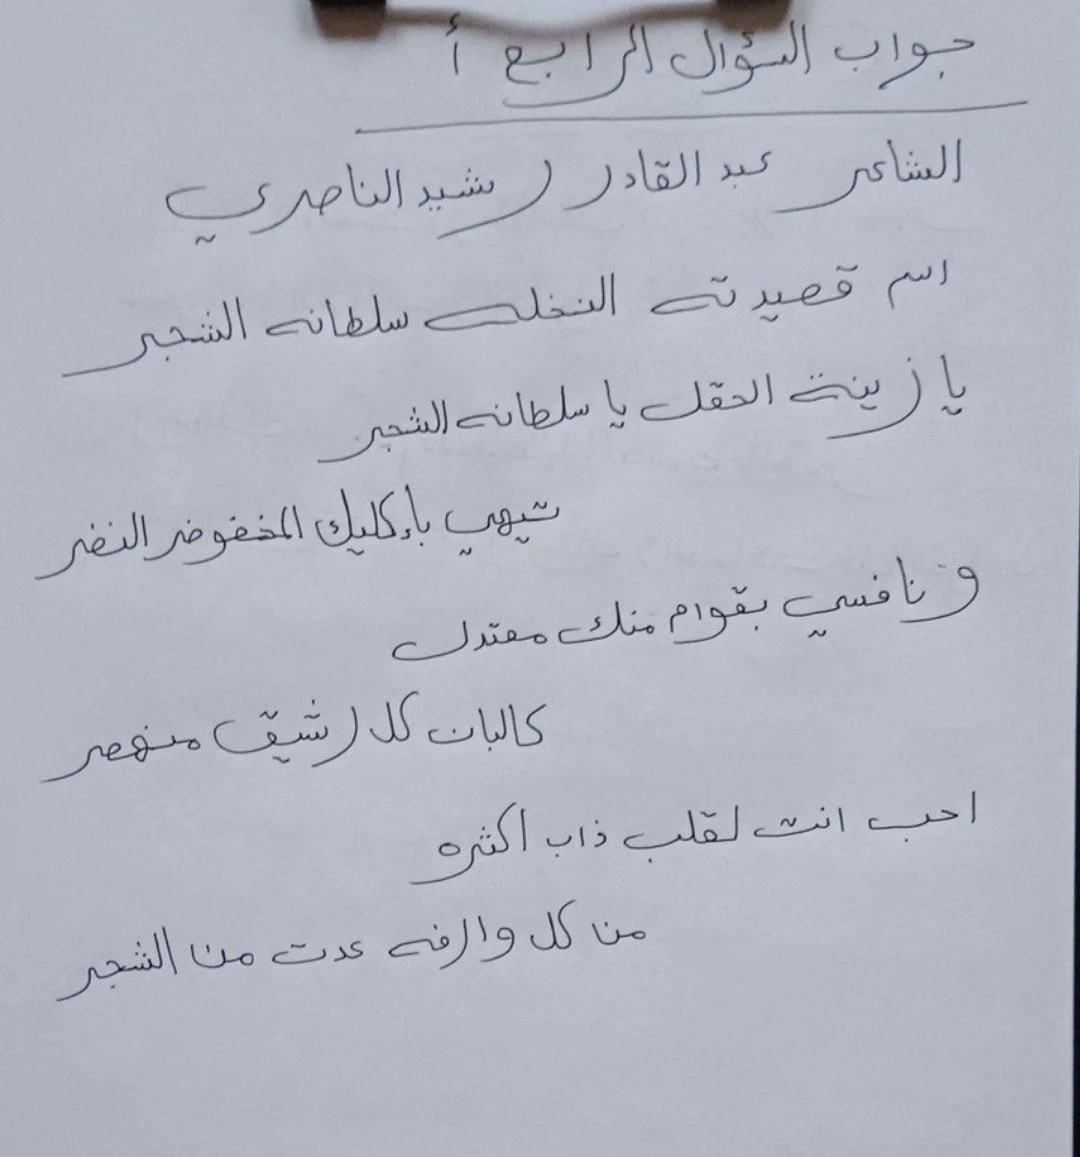 جواب السؤال الرابع أ
الشاعر عبد القادر رشيد الناصري
اسم قصيدته النخله سلطانه الشجر
يا زينة الحقل يا سلطانه الشجر
تيهي بإكليك المخفوضر النضر
ونافسي بقوام منك معتدل
كالبان كل رشيق منهصر
احب انت لقلب ذاب اكثره
من كل وارفه عدت من الشجر